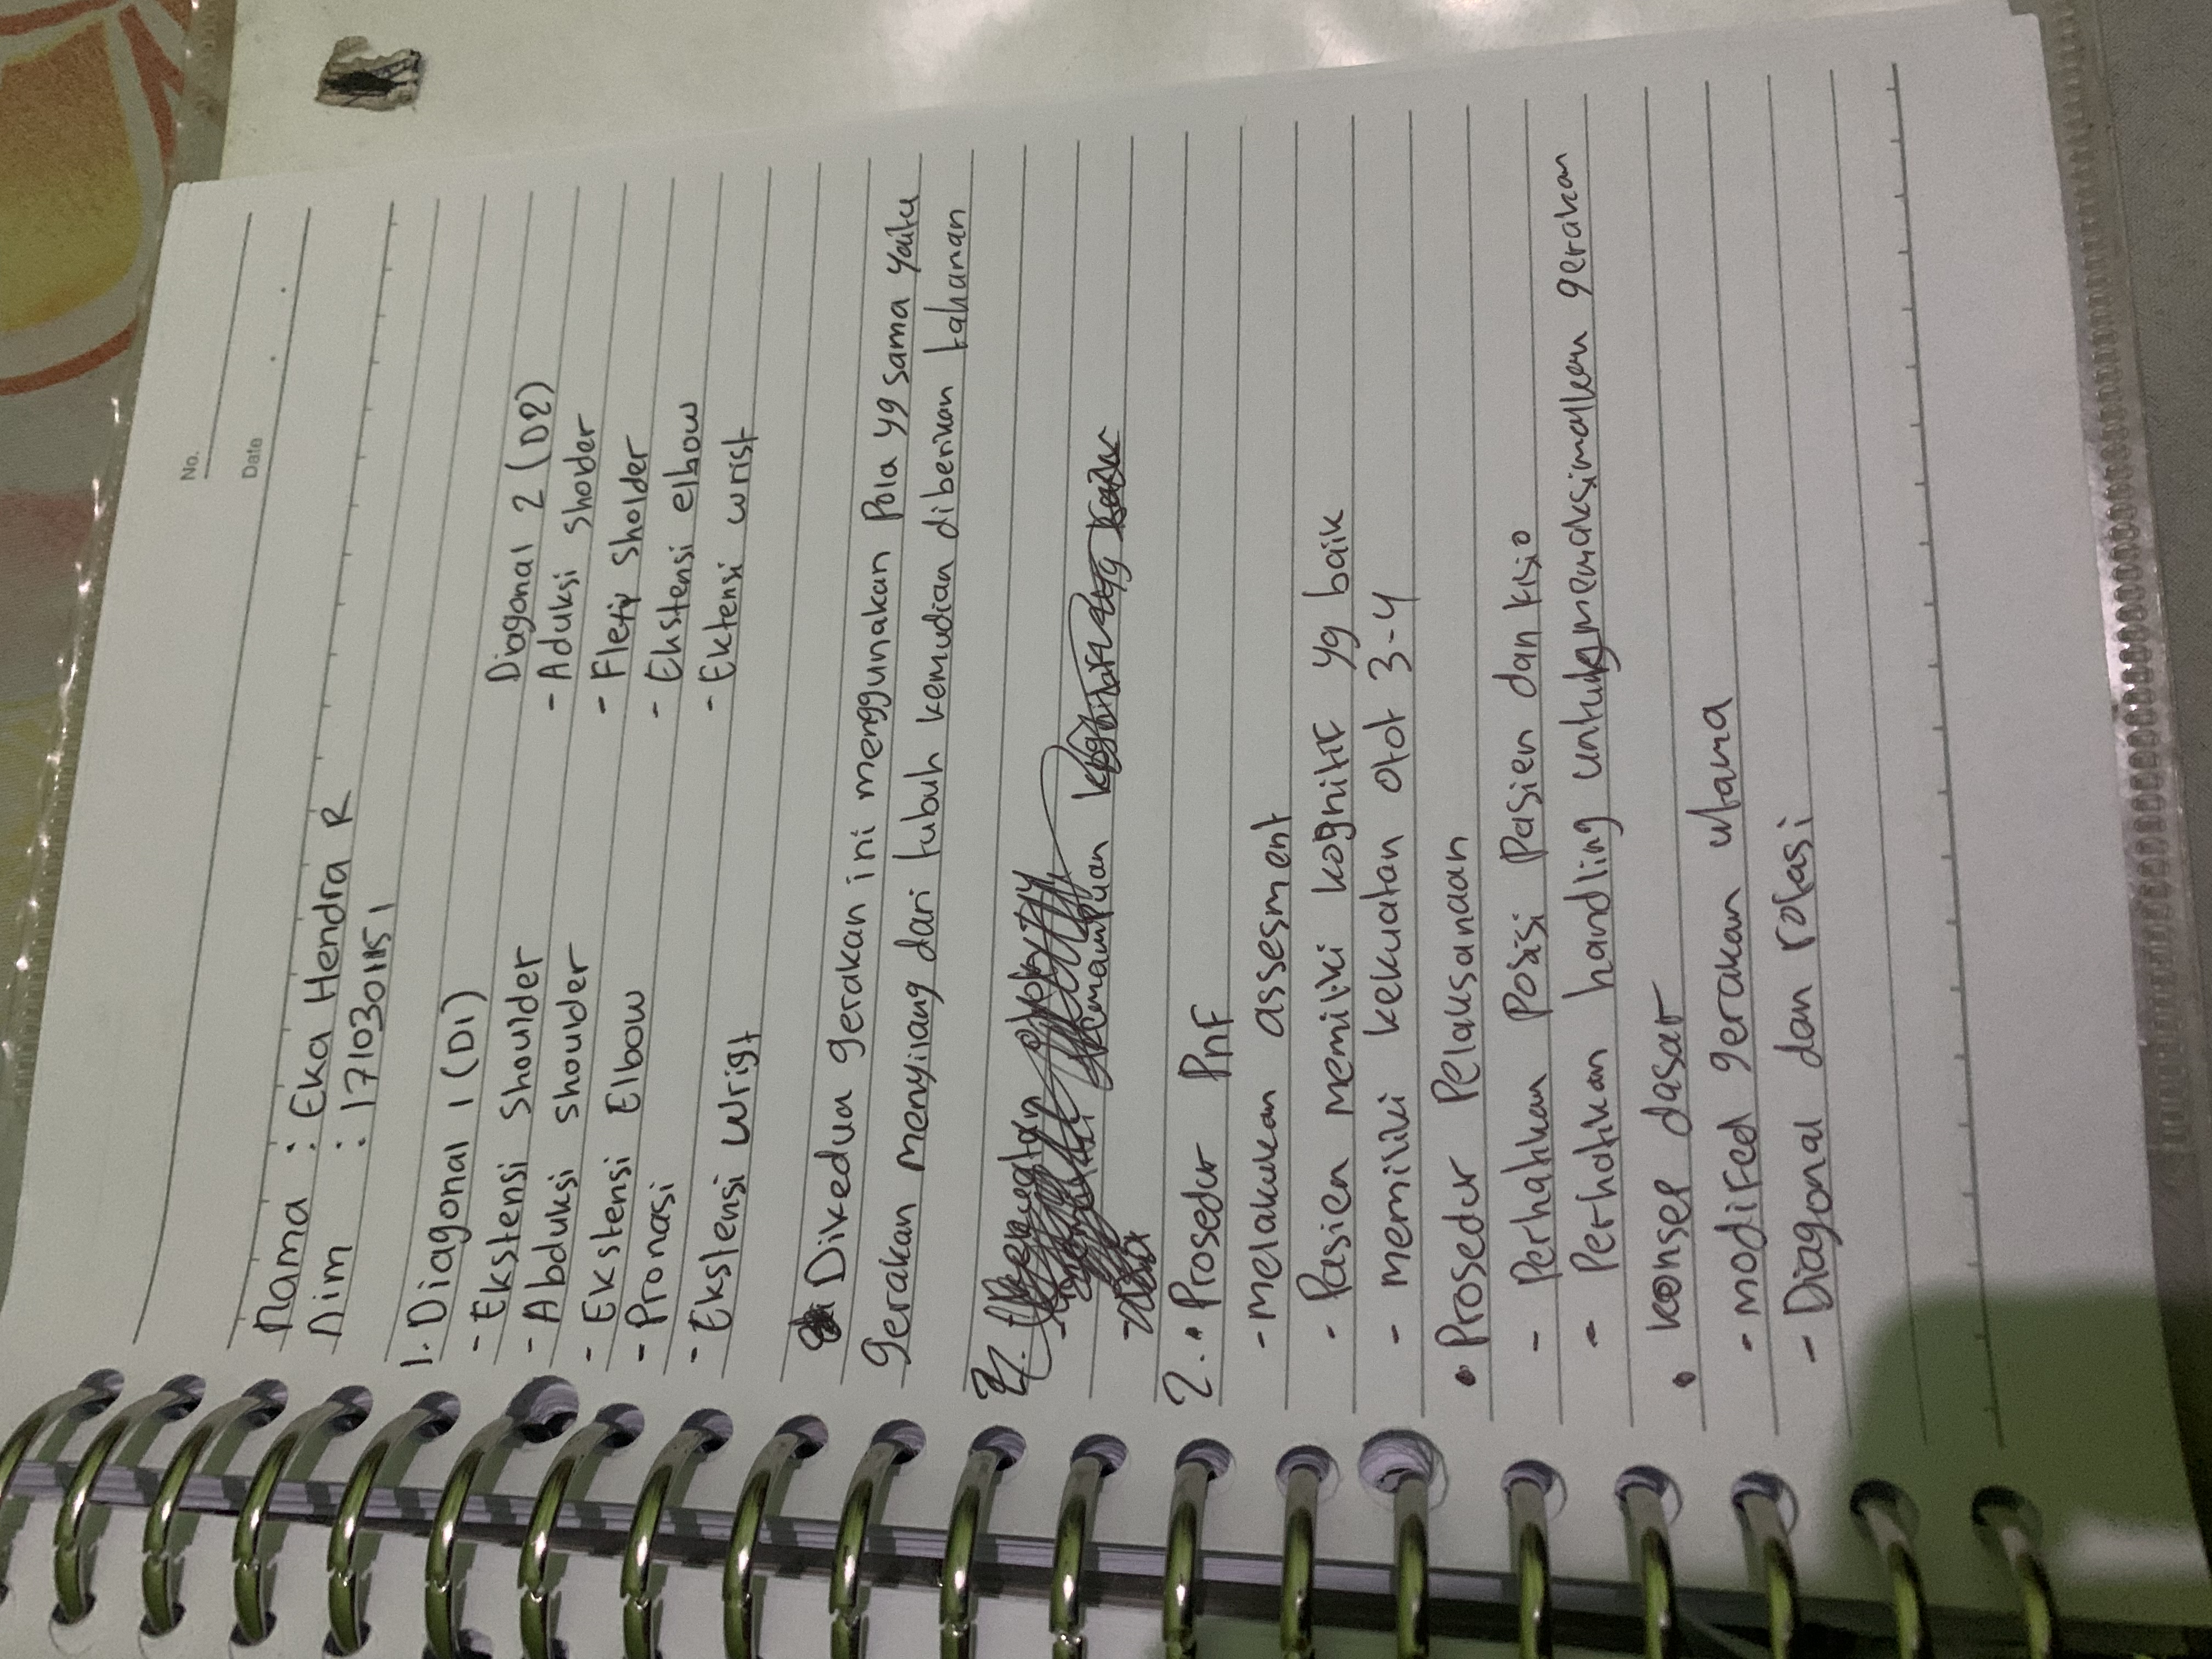 No.
Date
nama : Eka Hendra R
nim : 1710301151
1. Diagonal 1 (D1)
- Ekstensi Shoulder
- Abduksi shoulder
- Ekstensi Elbow
- Pronasi
- Ekstensi Wrist
Diagonal 2 (D2)
- Aduksi sholder
- Sholder
- Ekstensi elbow
- Ektensi wrist
Dikedua gerakan ini menggunakan Pola yg sama yaitu
gerakan menyilang dari tubuh kemudian diberikan tahanan
2.
kemampuan
2. • Prosedur PnF
- melakukan assesment
- Pasien memiliki kognitif yg baik
- memiliki kekuatan otot 3-4
• Prosedur Pelaksanaan
- Perhatikan Posisi Pasien dan
- Perhatikan handling untuk memaksimalkan gerakan
• konsep dasar
- modifed gerakan utama
- Diagonal dan rotasi